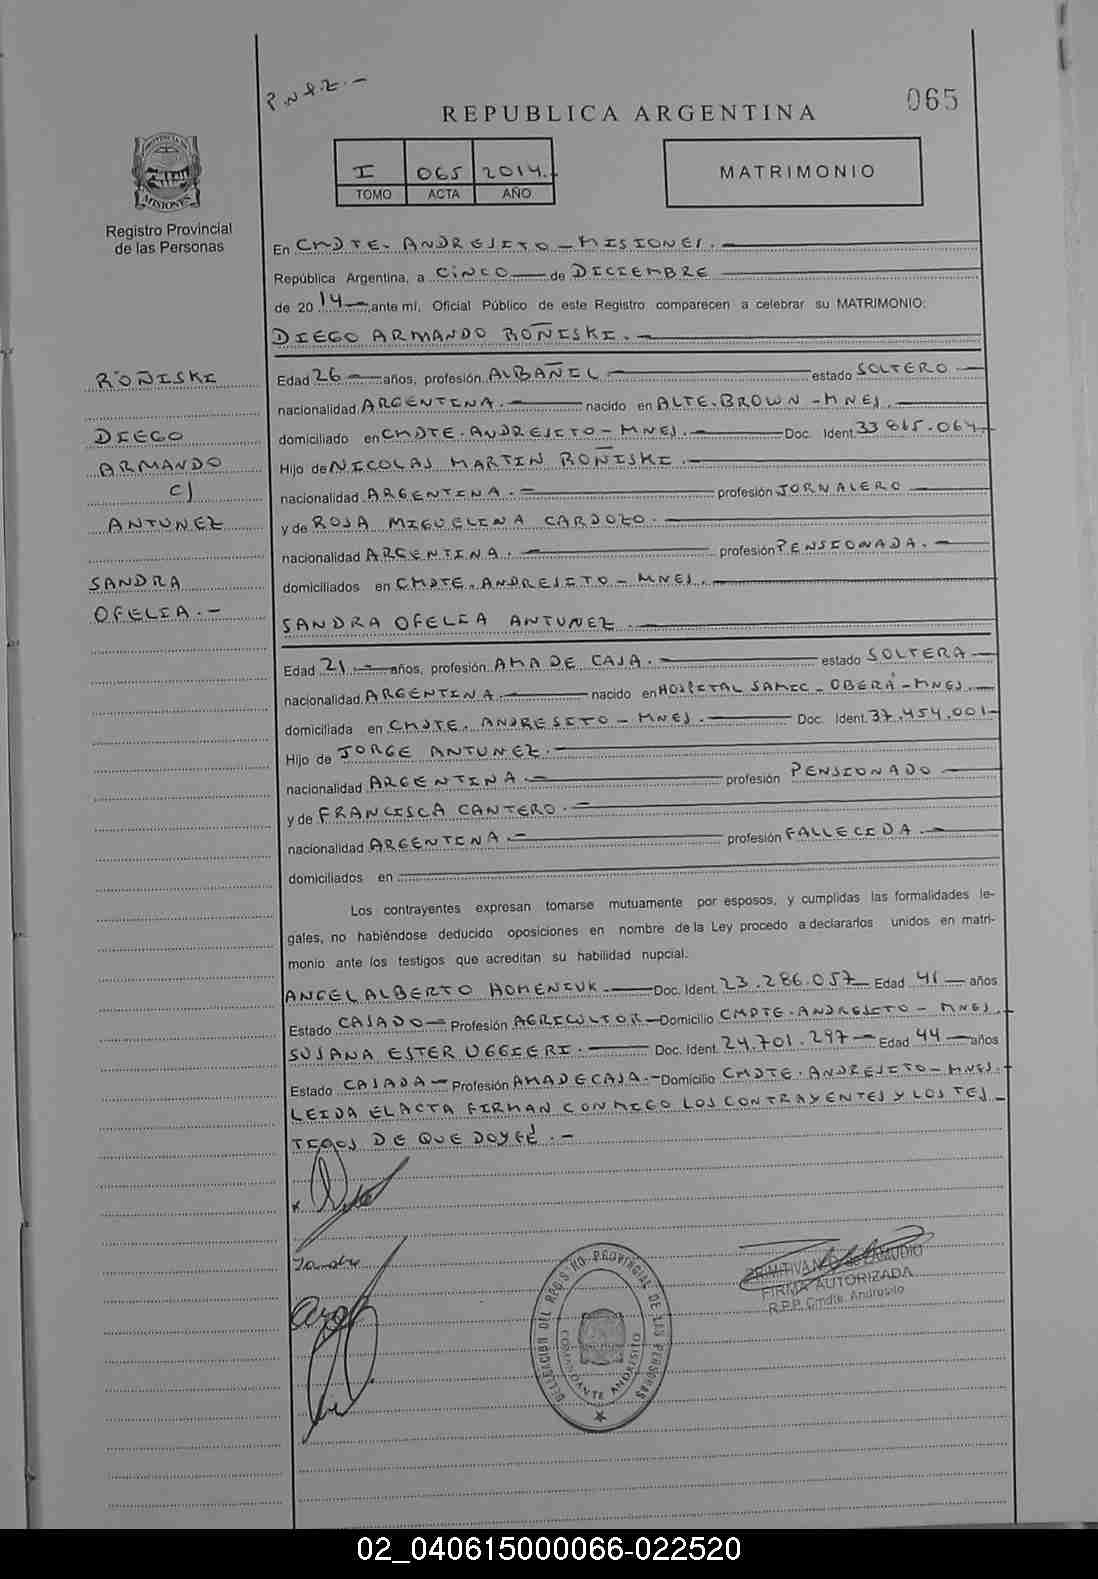 P.N.R.Z.-
065
REPUBLICA ARGENTINA
I 065 2014.-
TOMO ACTA AÑO
MATRIMONIO
PROVINCIA DE
MISIONES
Registro Provincial
de las Personas
En CMDTE. ANDRESITO - MISIONES.
República Argentina, a CINCO de DICIEMBRE
de 2014 ante mí, Oficial Público de este Registro comparecen a celebrar su MATRIMONIO:
DIEGO ARMANDO ROÑISKI.
ROÑISKI
DIEGO
ARMANDO
C/
ANTUNEZ
SANDRA
OFELIA.-
Edad 26 años, profesión ALBAÑIL estado SOLTERO
nacionalidad ARGENTINA. nacido en ALTE. BROWN - MNES.
domiciliado en CMDTE. ANDRESITO - MNES. Doc. Ident. 33.865.064
Hijo de NICOLAS MARTIN ROÑISKI.
nacionalidad ARGENTINA. profesión JORNALERO
y de ROSA MIGUELINA CARDOZO.
nacionalidad ARGENTINA. profesión PENSIONADA.
domiciliados en CMDTE. ANDRESITO - MNES.
SANDRA OFELIA ANTUNEZ.
Edad 21 años, profesión AMA DE CASA. estado SOLTERA
nacionalidad ARGENTINA. nacido en HOSPITAL SAMIC - OBERÁ - MNES.
domiciliada en CMDTE. ANDRESITO - MNES. Doc. Ident. 37.454.001
Hijo de JORGE ANTUNEZ.
nacionalidad ARGENTINA. profesión PENSIONADO
y de FRANCISCA CANTERO.
nacionalidad ARGENTINA profesión FALLECIDA.
domiciliados en
Los contrayentes expresan tomarse mutuamente por esposos, y cumplidas las formalidades le-
gales, no habiéndose deducido oposiciones en nombre de la Ley procedo a declararlos unidos en matri-
monio ante los testigos que acreditan su habilidad nupcial:
ANGEL ALBERTO HOMENIUK. Doc. Ident. 23.286.057 Edad 41 años
Estado CASADO Profesión AGRICULTOR Domicilio CMDTE. ANDRESITO - MNES.
SUSANA ESTER UGGIERI. Doc. Ident. 24.701.297 Edad 44 años
Estado CASADA Profesión AMA DE CASA. Domicilio CMDTE. ANDRESITO - MNES.
LEIDA EL ACTA FIRMAN CONMIGO LOS CONTRAYENTES Y LOS TES
TIGOS DE QUE DOY FÉ.-
DELEGACION DEL REGISTRO PROVINCIAL DE LAS PERSONAS
COMANDANTE ANDRESITO
PRIMITIVA N. O. de ZAMUDIO
FIRMA AUTORIZADA
R.P.P. Cmdte. Andresito
02_040615000066-022520